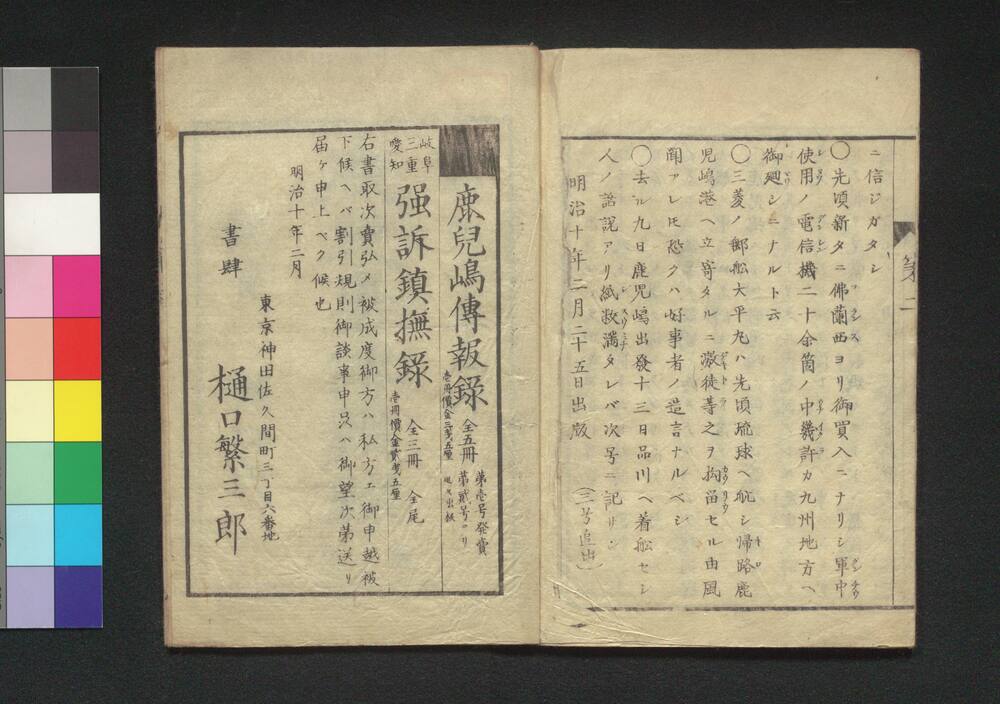 ニ信ジガタシ
〇先頃新タニ佛蘭西ヨリ御買入ニナリシ軍中
使用ノ電信機二十余箇ノ中幾許カ九州地方ヘ
御廻シニナルト云
〇三菱ノ郵舩大平丸ハ先頃琉球ヘ航シ帰路鹿
児嶋港ヘ立寄タルニ激徒等之ヲ拘留セル由風
聞アレ𪜈恐クハ好事者ノ造言ナルベシ
〇去ル九日鹿児嶋出發十三日品川ヘ着舩セシ
人ノ話説アリ紙数満タレバ次号ニ記リン
明治十年二月二十五日出版
(三号追出)
第二
鹿兒嶋傳報録
全五冊
壱冊價金三戔五厘
第壱号発賣
第貳号ヨリ
岐阜
三重
愛知
强訴鎮撫録
全三冊 全尾
壱冊價金貳戔五厘
右書取次賣弘メ被成度御方ハ私方エ御申越被
下候ヘバ割引規則御談事申又ハ御望次第送リ
届ケ申上ベク候也
明治十年二月
東京神田佐久間町三丁目六番地
書肆
樋口繁三郎